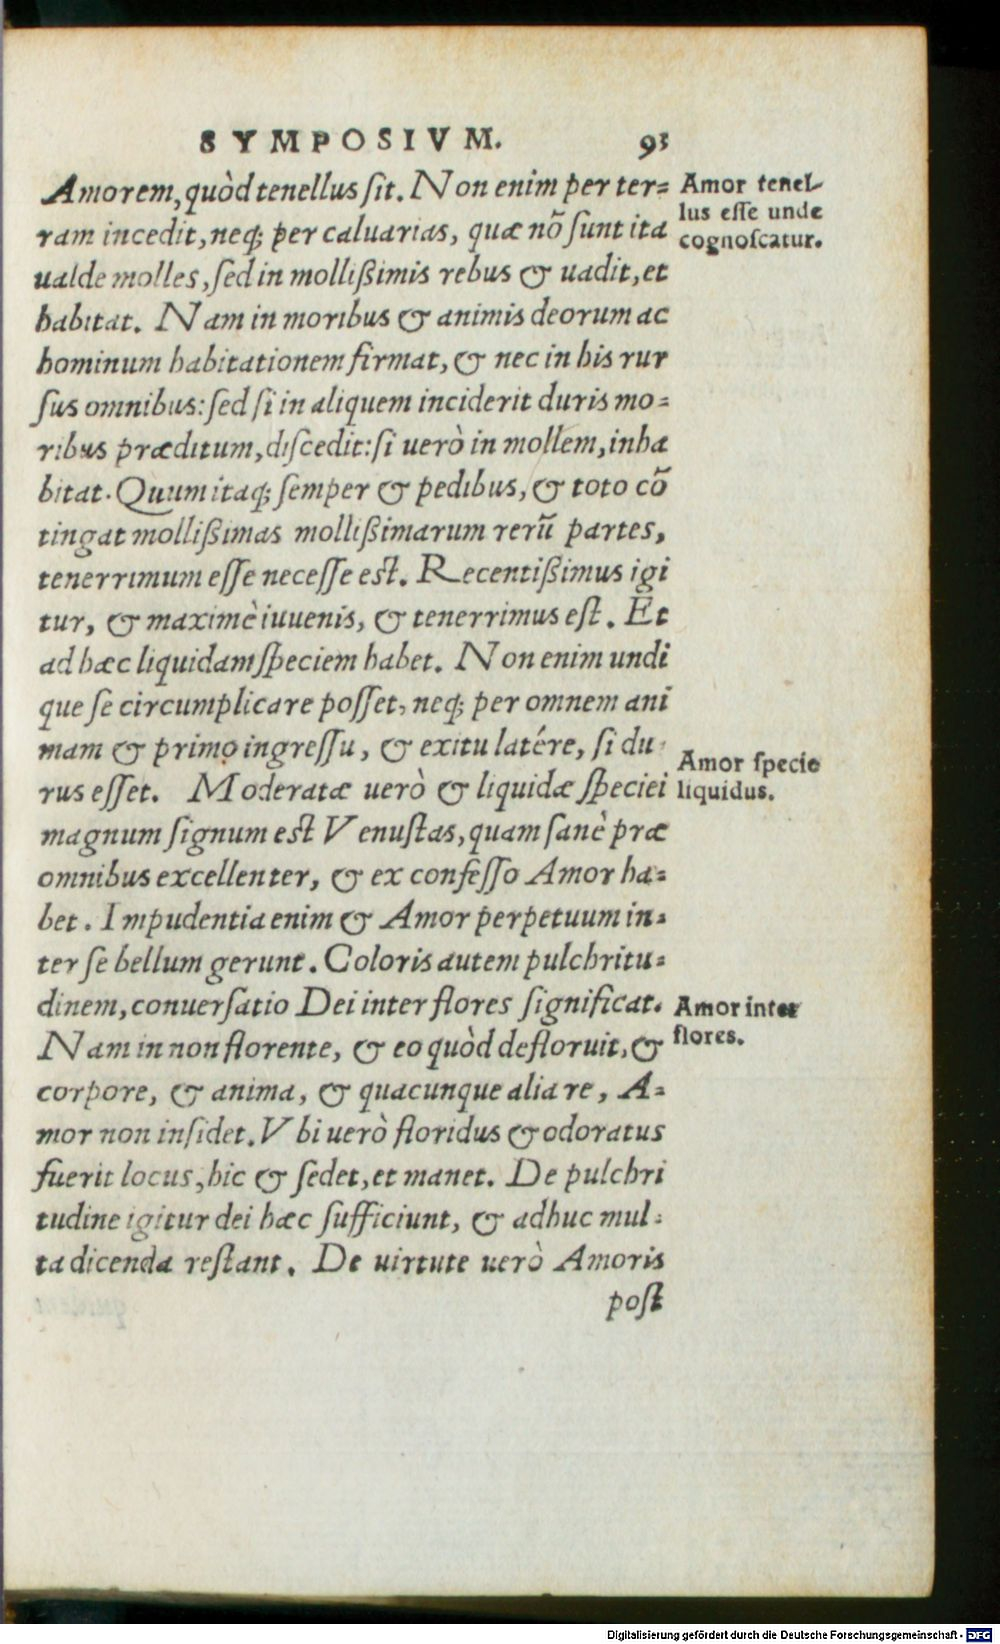 SYMPOSIVM. 93
Amorem, quòd tenellus sit. Non enim per ter=
ram incedit, neq; per caluarias, quæ nõ sunt ita
ualde molles, sed in mollißimis rebus & uadit, et
habitat. Nam in moribus & animis deorum ac
hominum habitationem firmat, & nec in his rur
sus omnibus: sed si in aliquem inciderit duris mo=
ribus præditum, discedit: si uerò in mollem, inha
bitat. Quum itaq; semper & pedibus, & toto cõ
tingat mollißimas mollißimarum rerũ partes,
tenerrimum esse necesse est. Recentißimus igi
tur, & maximè iuuenis, & tenerrimus est. Et
ad hæc liquidam speciem habet. Non enim undi
que se circumplicare posset, neq; per omnem ani
mam & primo ingressu, & exitu latére, si du
rus esset. Moderatæ uerò & liquidæ speciei
magnum signum est Venustas, quam sanè præ
omnibus excellenter, & ex confesso Amor ha=
bet. Impudentia enim & Amor perpetuum in=
ter se bellum gerunt. Coloris autem pulchritu=
dinem, conuersatio Dei inter flores significat.
Nam in non florente, & eo quòd defloruit, &
corpore, & anima, & quacunque alia re, A=
mor non insidet. Vbi uerò floridus & odoratus
fuerit locus, hic & sedet, et manet. De pulchri
tudine igitur dei hæc sufficiunt, & adhuc mul=
ta dicenda restant. De uirtute uerò Amoris
post
Amor tenel-
lus esse unde
cognoscatur.
Amor specie
liquidus.
Amor inter
flores.
Digitalisierung gefördert durch die Deutsche Forschungsgemeinschaft - DFG